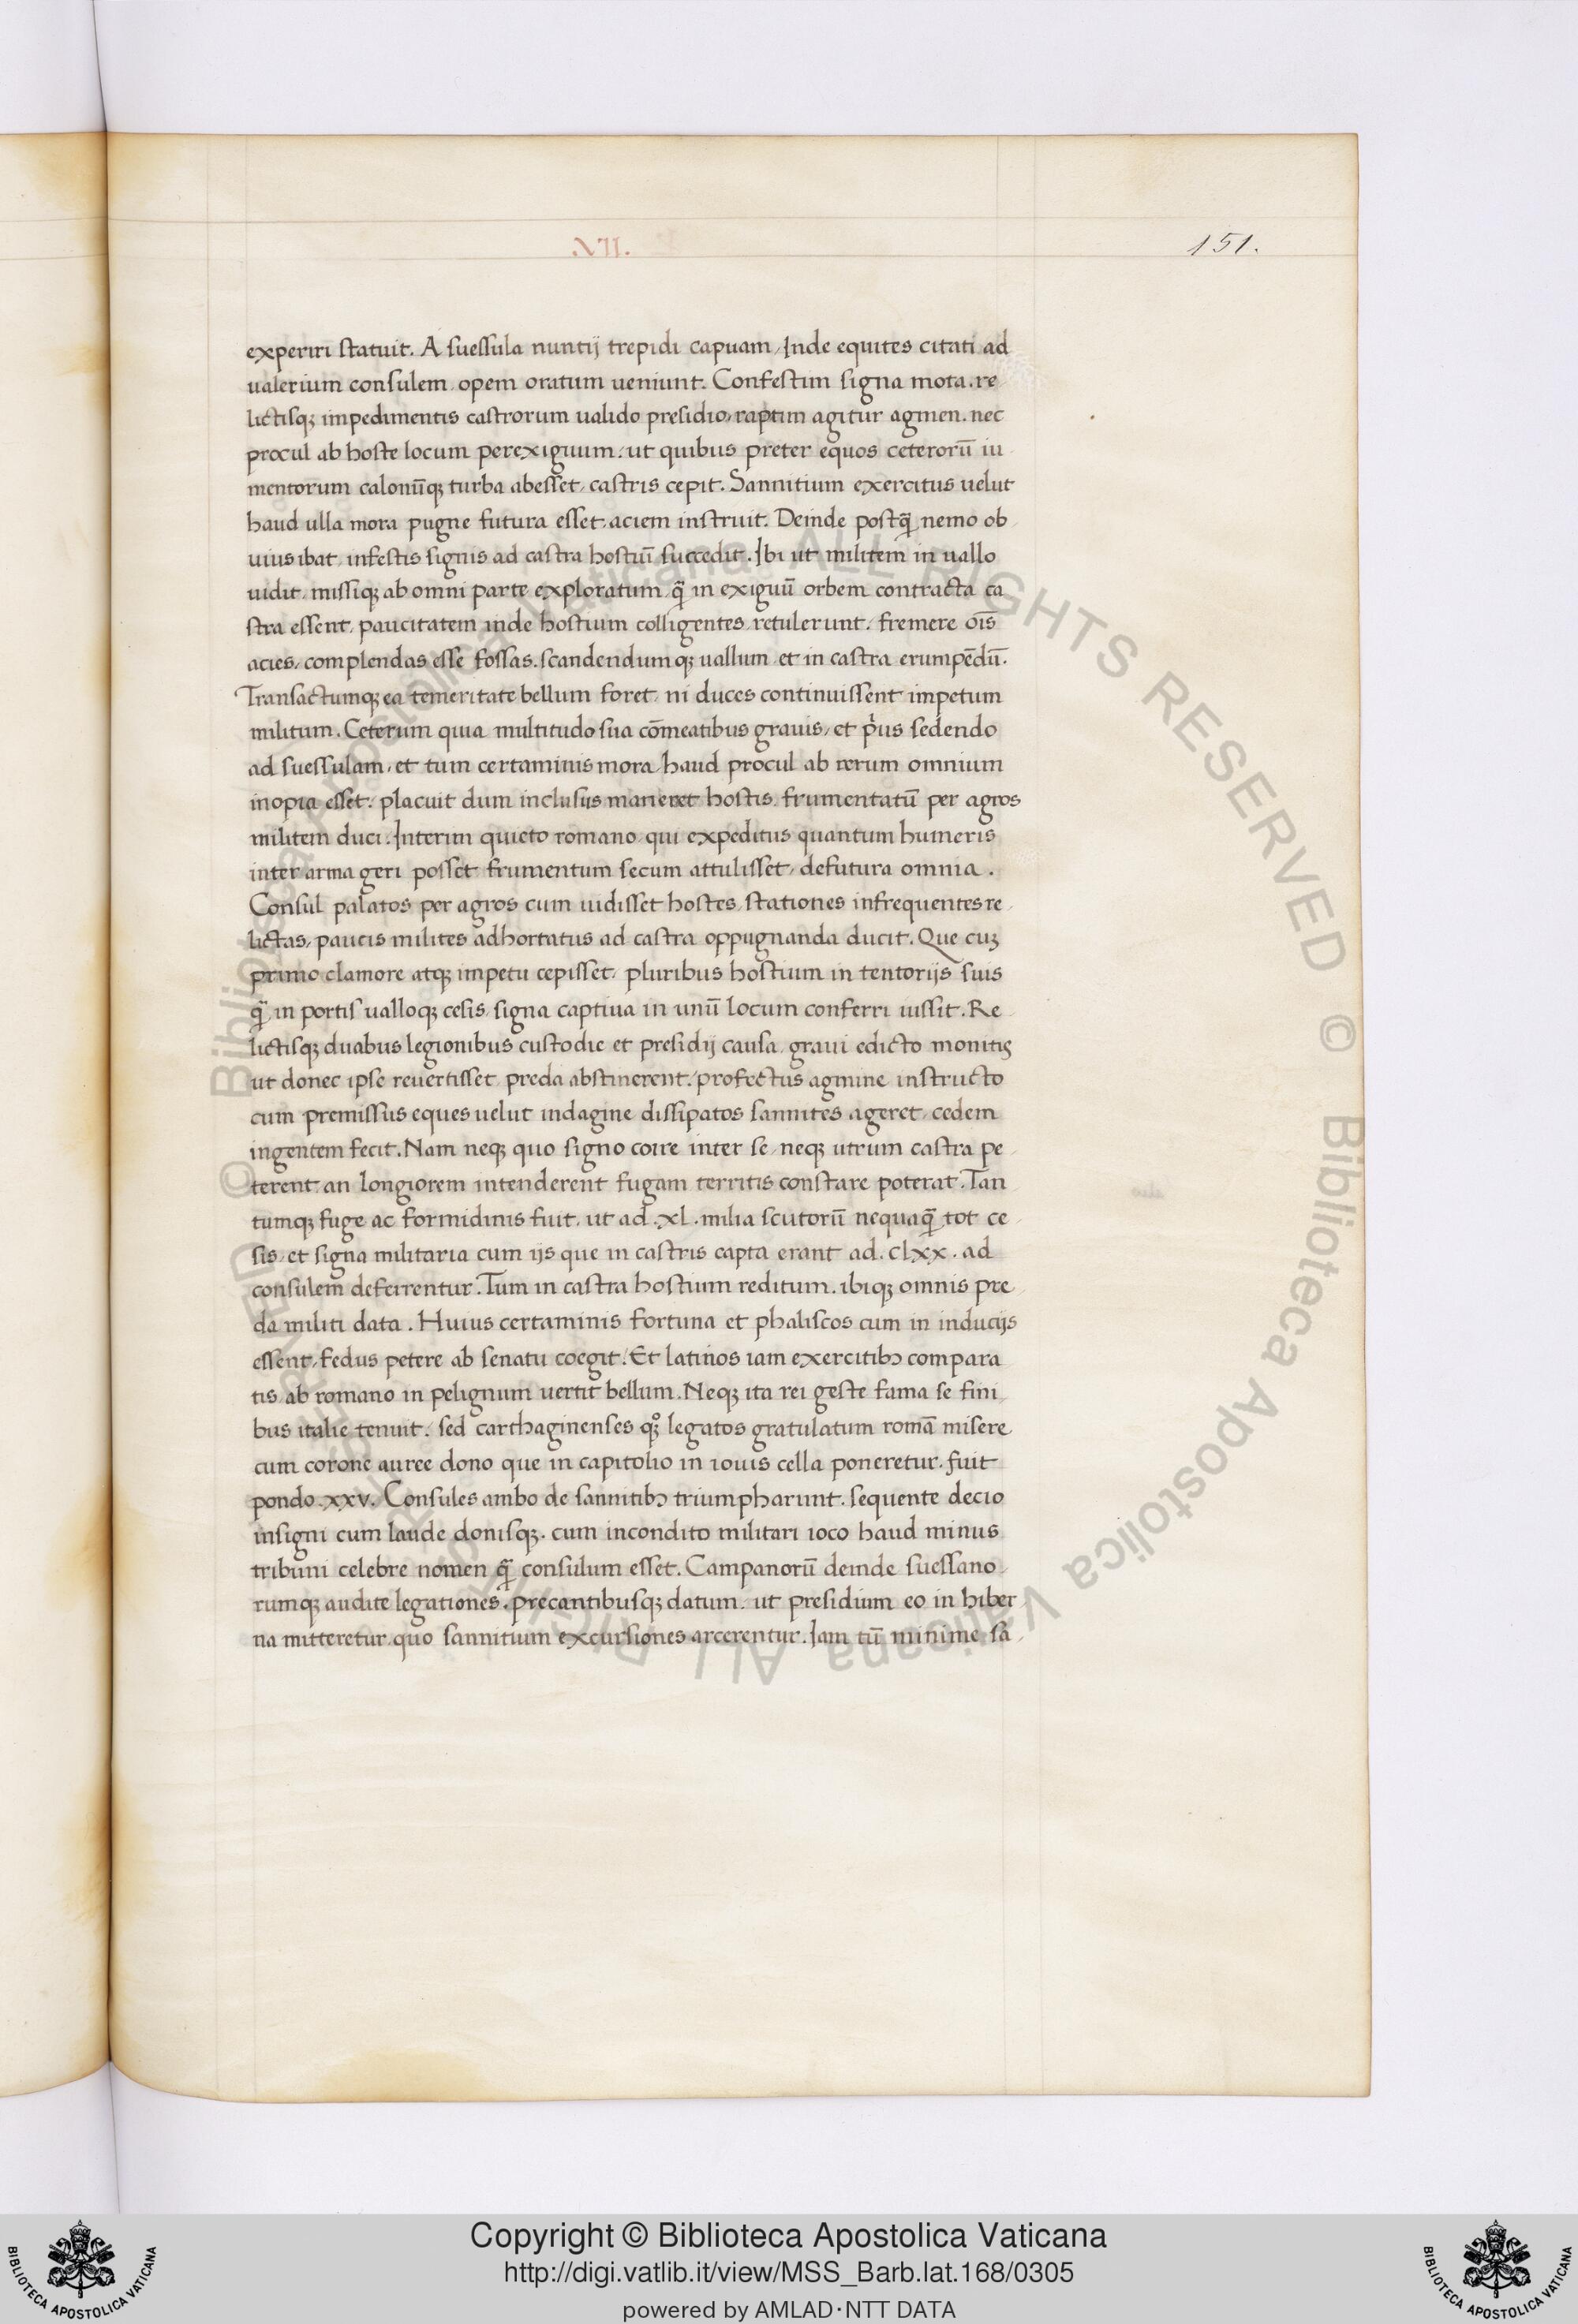 .VII.
151.
experiri statuit. A suessula nuntij trepidi capuam, Inde equites citati ad
ualerium consulem opem oratum ueniunt. Confestim signa mota. re
lictisqꝫ impedimentis castrorum ualido presidio, raptim agitur agmen. nec
procul ab hoste locum perexiguum. ut quibus preter equos ceterorū iu
mentorum calonūqꝫ turba abesset, castris cepit. Sannitium exercitus uelut
haud ulla mora pugne futura esset, aciem instruit. Deinde postq̄ nemo ob
uius ibat, infestis signis ad castra hostiū succedit. Ibi ut militem in uallo
uidit, missiqꝫ ab omni parte exploratum, q̄ in exiguū orbem contracta ca
stra essent, paucitatem inde hostium colligentes retulerunt, fremere oīs
acies, complendas esse fossas. scandendumqꝫ uallum et in castra erumpēdū.
Transactumqꝫ ea temeritate bellum foret, ni duces continuissent impetum
militum. Ceterum quia multitudo sua cōmeatibus grauis, et p̓us sedendo
ad suessulam, et tum certaminis mora haud procul ab rerum omnium
inopia esset. placuit dum inclusus maneret hostis, frumentatū per agros
militem duci. Interim quieto romano qui expeditus quantum humeris
inter arma geri posset frumentum secum attulisset, defutura omnia.
Consul palatos per agros cum uidisset hostes, stationes infrequentes re
lictas, paucis milites adhortatus ad castra oppugnanda ducit. Que cuꝫ
primo clamore atqꝫ impetu cepisset, pluribus hostium in tentorijs suis
q̄ in portis ualloqꝫ cesis, signa captiua in unū locum conferri iussit. Re
lictisqꝫ duabus legionibus custodie et presidij causa, graui edicto monitis
ut donec ipse reuertisset preda abstinerent. profectus agmine instructo
cum premissus eques uelut indagine dissipatos sannites ageret, cedem
ingentem fecit. Nam neqꝫ quo signo coire inter se, neqꝫ utrum castra pe
terent an longiorem intenderent fugam territis constare poterat. Tan
tumqꝫ fuge ac formidinis fuit, ut ad .xl. milia scutorū nequaq̄ tot ce
sis, et signa militaria cum ijs que in castris capta erant ad. clxx. ad
consulem deferrentur. Tum in castra hostium reditum. ibiqꝫ omnis pre
da militi data. Huius certaminis fortuna et phaliscos cum in inducijs
essent, fedus petere ab senatu coegit. Et latinos iam exercitibꝫ compara
tis, ab romano in pelignum uertit bellum. Neqꝫ ita rei geste fama se fini
bus italie tenuit. sed carthaginenses qꝫͦ legatos gratulatum romā misere
cum corone auree dono que in capitolio in iouis cella poneretur. fuit
pondo .xxv. Consules ambo de sannitibꝫ triumpharunt. sequente decio
insigni cum laude donisqꝫ. cum incondito militari ioco haud minus
tribuni celebre nomen q̄ consulum esset. Campanorū deinde suessano
rumqꝫ audite legationes. precantibusqꝫ datum. ut presidium eo in hiber
na mitteretur. quo sannitium excursiones arcerentur. Iam tū minime sa
© Biblioteca Apostolica Vaticana ALL RIGHTS RESERVED
Copyright © Biblioteca Apostolica Vaticana
http://digi.vatlib.it/view/MSS_Barb.lat.168/0305
powered by AMLAD·NTT DATA
BIBLIOTECA APOSTOLICA VATICANA
BIBLIOTECA APOSTOLICA VATICANA